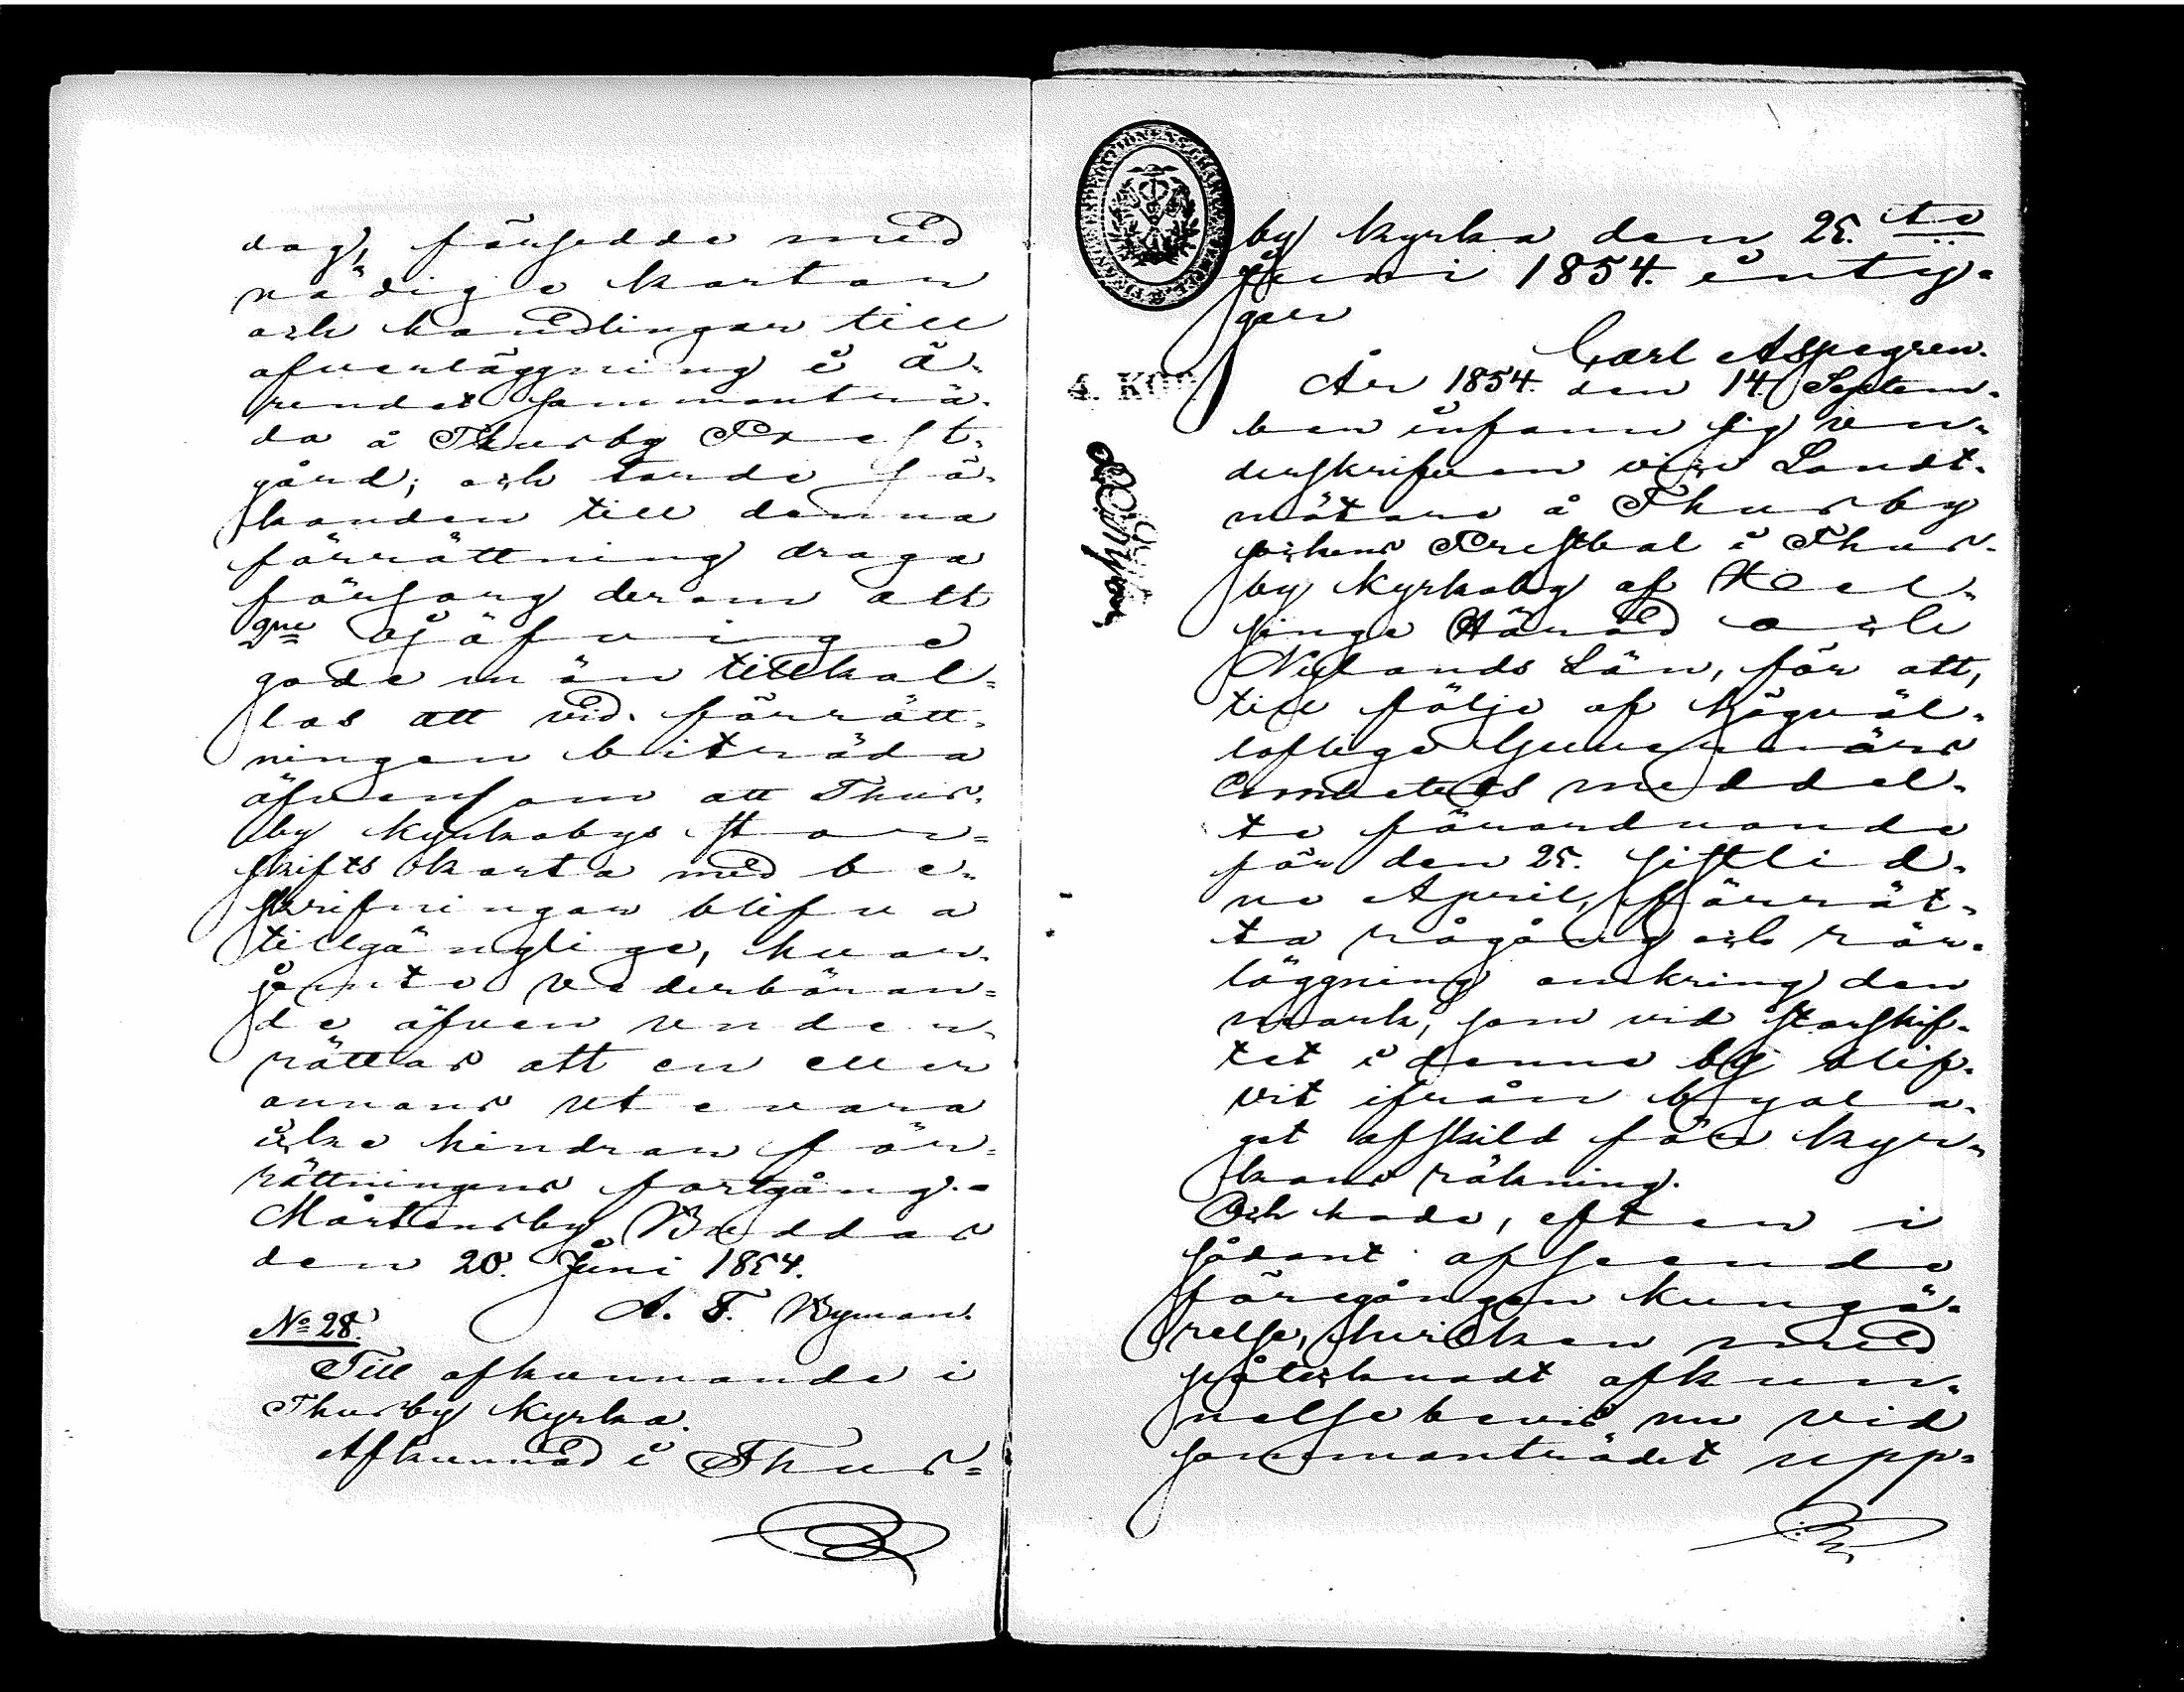 dag, försedde med
nödiga kartor
och handlingar till
öfverläggning i ä-
rendet sammanträ-
da å Thusby Prest-
gård; och torde sö-
kanden till denna
förrättning draga
försorg derom att
2ne ojäfvige
gode män tillkal=
las att vid förrätt-
ningen biträda
äfvensom att Thus-
by Kyrkobys stor=
skifts karta med be-
skrifningar blifva
tillgänglige, hvar-
jemte vederböran=
de äfven under-
rättas att en eller
annans utevaro
icke hindrar för=
rättningens fortgång.-
Mårtensby Boddas
den 20. Juni 1854.
A. F. Nyman.
No 28.
Till afkunnande i
Thusby Kyrka.
Afkunnad i Thus=
by kyrka den 25.te
Juni 1854. inty=
gar
Carl Aspegren.
4. KOP
År 1854. den 14. Septem-
ber infann sig un-
derskrifven vice Landt-
mätare å Thusby
sockens Prestbol i Thus-
by Kyrkoby af Hel-
singe Härad och
Nylands Län, för att,
till följe af högväl-
loflige Guvernörs
Embetets meddel-
te förordnande
för den 25. sistlid-
ne April, förrät-
ta rågång och rör-
läggning omkring den
mark, som vid storskif-
tet i denne by blif-
vit ifrån byala-
get afskild för kyr-
kans räkning.
Och hade, efter i
sådant afseende
föregången kungö-
relse, hvilken med
påtecknadt afkun-
nelsebevis nu vid
sammanträdet upp=